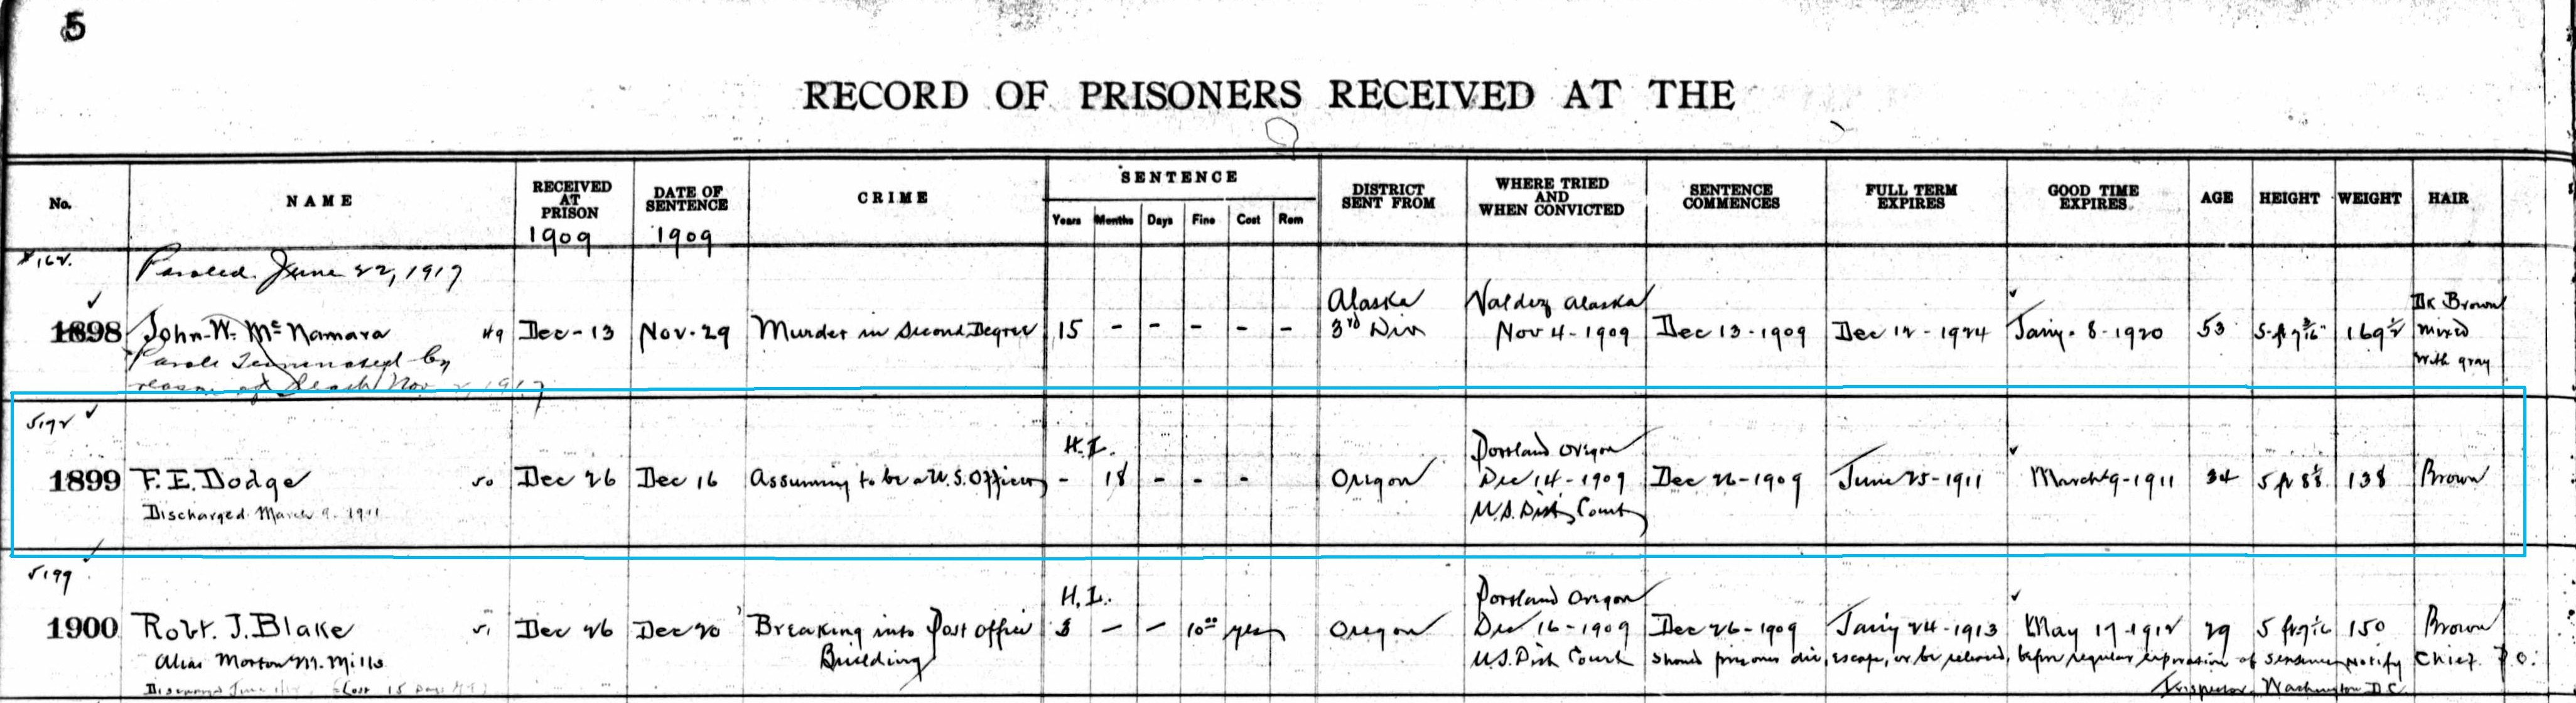 5
RECORD OF PRISONERS RECEIVED AT THE
No. NAME RECEIVED AT PRISON 1909 DATE OF SENTENCE 1909 CRIME SENTENCE Years Months Days Fine Cost Rem DISTRICT SENT FROM WHERE TRIED AND WHEN CONVICTED SENTENCE COMMENCES FULL TERM EXPIRES GOOD TIME EXPIRES AGE HEIGHT WEIGHT HAIR
Paroled June 22, 1917
Alaska Valdez Alaska Dk Brown
1898 John W. McNamara 49 Dec - 13 Nov. 29 Murder in Second Degree 15 - - - - - 3rd Div Nov 4 - 1909 Dec 13 - 1909 Dec 12 - 1924 Jany. 8 - 1920 53 5 ft 7 3/16" 169 1/2 mixed
Parole Terminated by with gray
reason of death Nov 1917
5192
H.L. Portland Oregon
1899 F. E. Dodge 50 Dec 26 Dec 16 Assuming to be a U.S. Officer - 18 - - - Oregon Dec 14 - 1909 Dec 26 - 1909 June 25 - 1911 March 9 - 1911 34 5 ft 138 Brown
Discharged March 9 1911 U.S. Dist Court
5199
H.L. Portland Oregon
1900 Robt. J. Blake 51 Dec 26 Dec 20 Breaking into Post Office 3 - - 10 00 yes Oregon Dec 16 - 1909 Dec 26 - 1909 Jany 24 - 1913 May 17 - 1912 29 5 ft 150 Brown
Alias Morton M. Mills Building U.S. Dist Court Should prisoner die, escape, or be released, before regular expiration of sentence Notify Chief P.O.
Discharged June Lost 15 Days Inspector, Washington D.C.